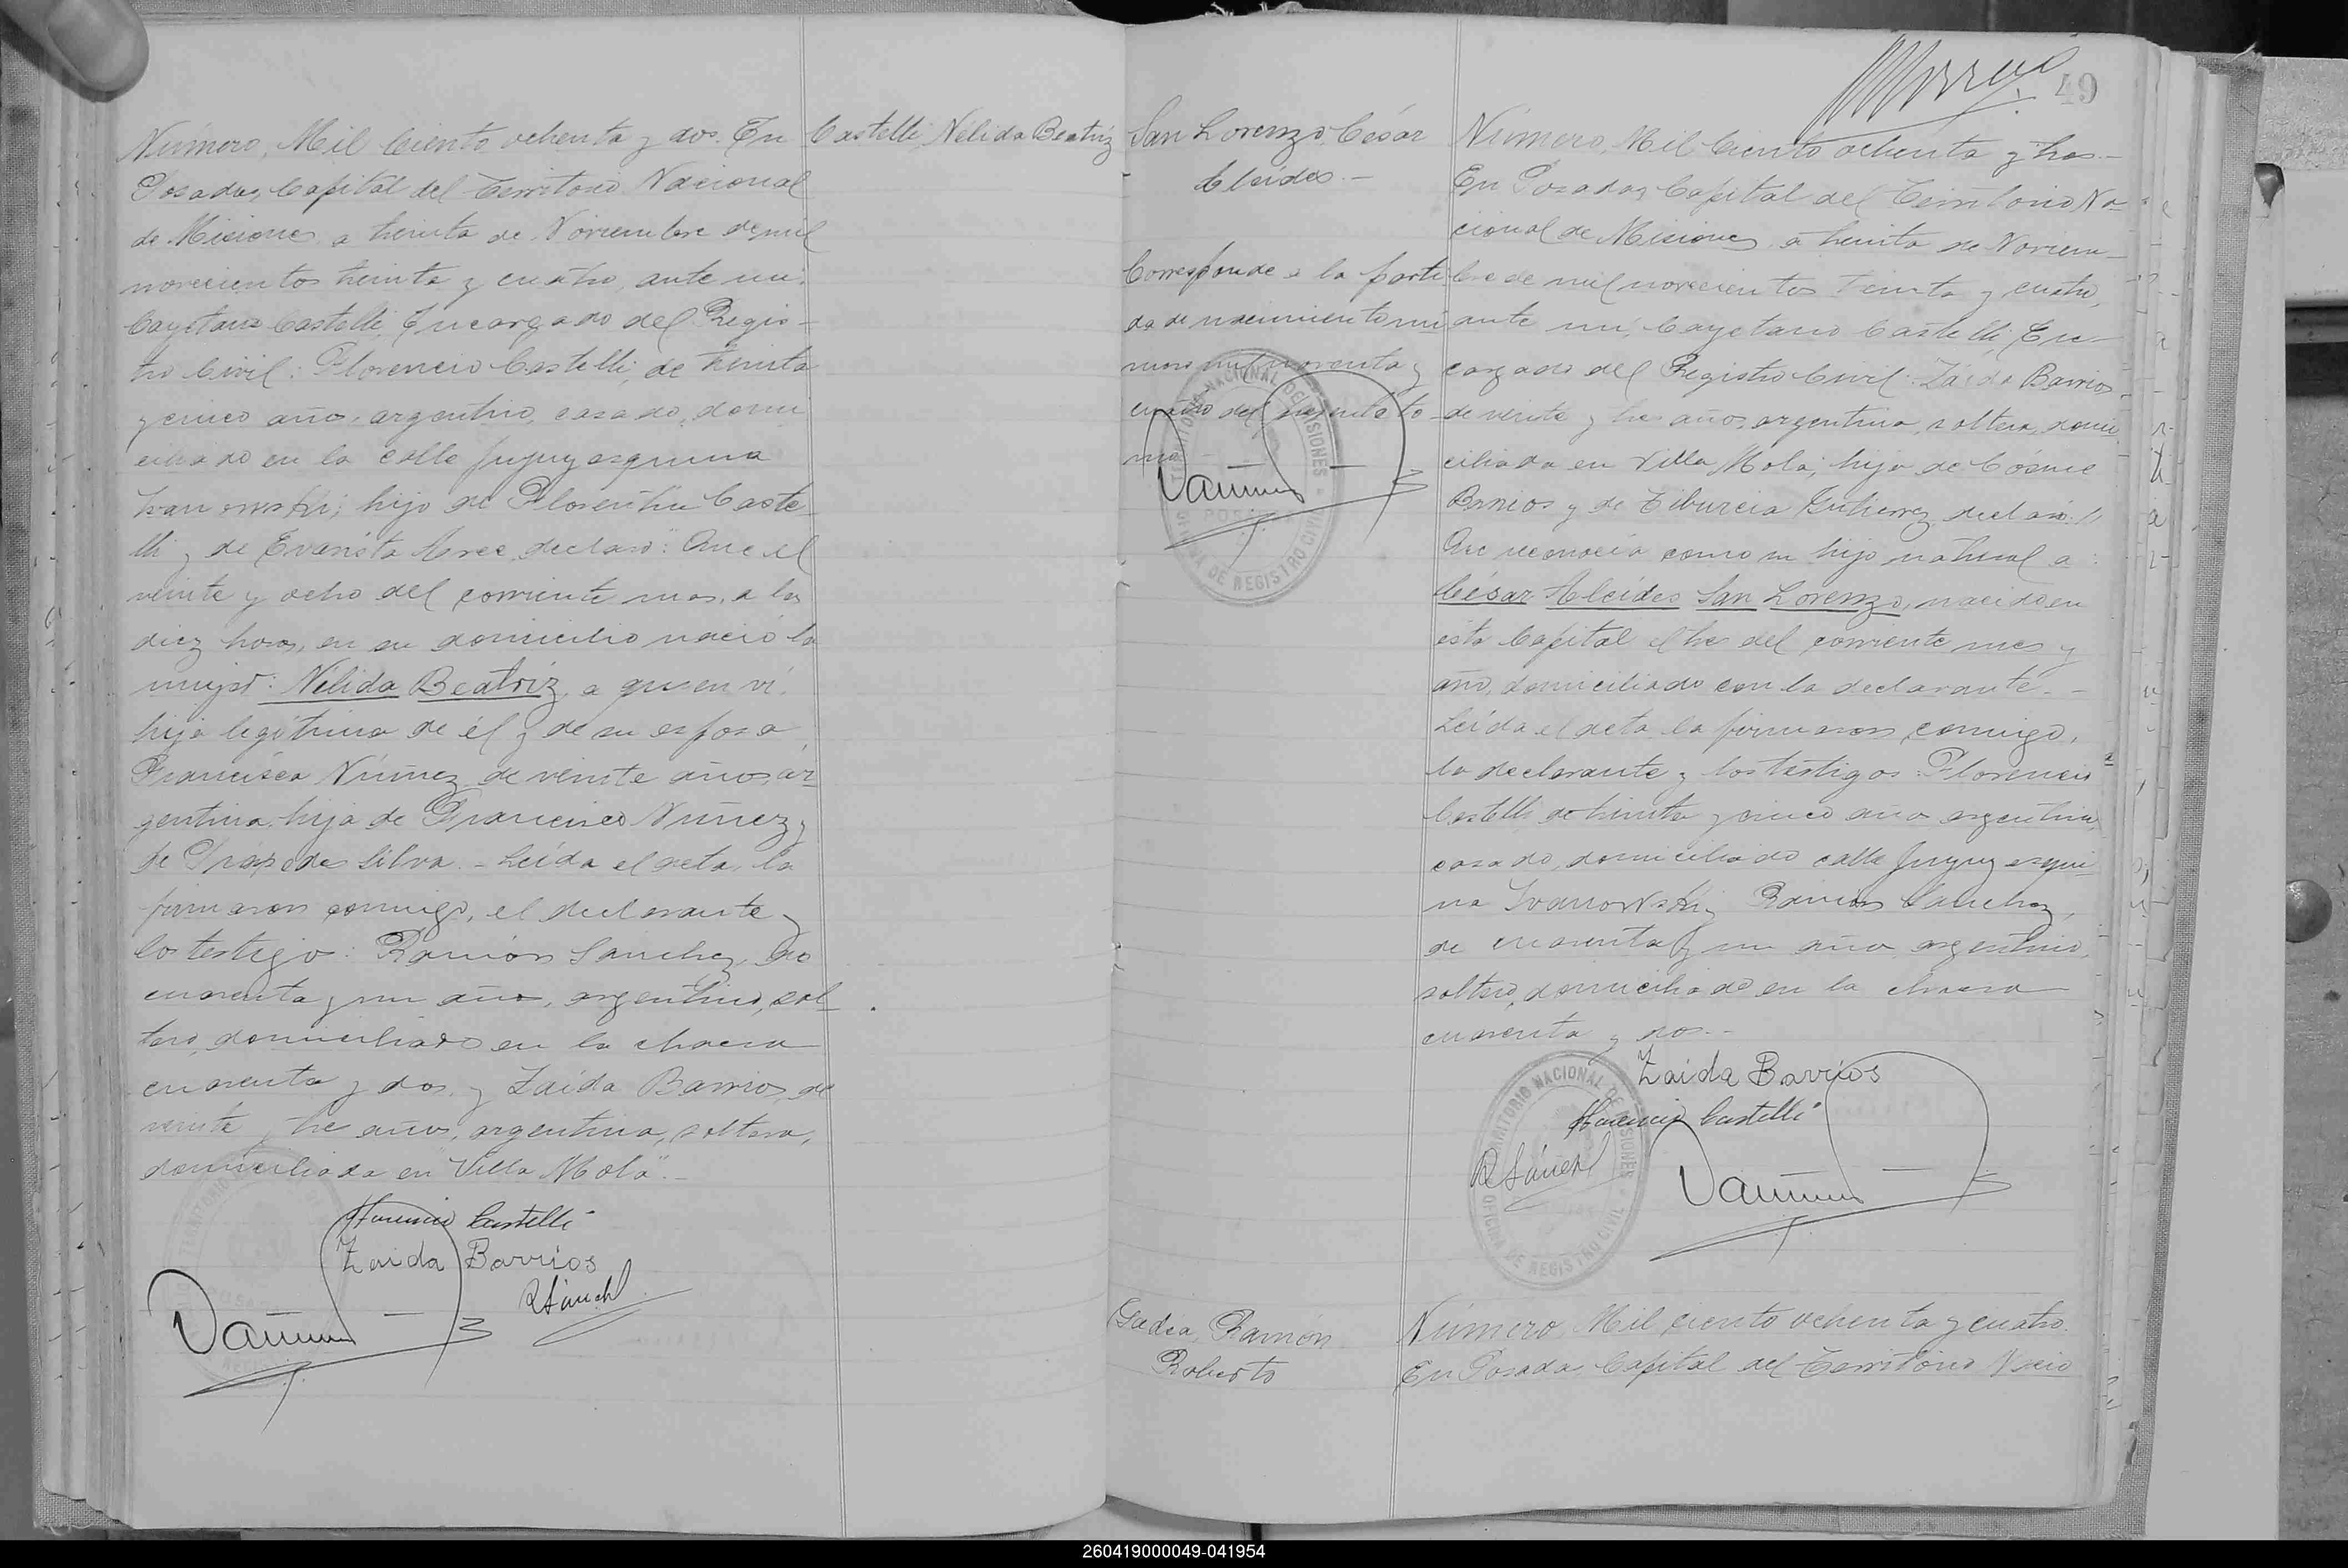 Número, Mil Ciento ochenta y dos. En
Posadas, Capital del Territorio Nacional
de Misiones a treinta de Noviembre de mil
novecientos treinta y cuatro, ante mi:
Cayetano Castelli, Encargado del Regis-
tro Civil: Florencio Castelli, de treinta
y cinco años, argentino, casado, domi
ciliado en la calle Jujuy esquina
Ivanowski; hijo de Florentin Caste
lli y de Evarista Arce, declaró: Que el
veinte y ocho del corriente mes, a las
diez horas, en su domicilio nació la
mujer: Nélida Beatriz, a quien ví,
hija legítima de él y de su esposa
Francisca Núñez, de veinte años, ar
gentina, hija de Francisco Núñez y
de Silva. - Leída el acta, la
firmaron conmigo, el declarante y
los testigos: Ramón Sanchez, de
cuarenta y un años, argentino, sol
tero, domiciliado en la chacra
cuarenta y dos, y Zaida Barrios, de
veinte y tres años, argentina, soltera,
domiciliada en "Villa Mola".-
Florencio Castelli
Zaida Barrios
R Sánch
Castelli, Nélida Beatriz
San Lorenzo, César
Alcídes.-
Corresponde a la parti
da de nacimiento nú
mero mil noventa y
cuatro del to
mo
TERRITORIO NACIONAL DE MISIONES
POSADAS
OFICINA DE REGISTRO CIVIL
49
Número, Mil Ciento ochenta y tres.-
En Posadas, Capital del Territorio Na-
cional de Misiones, a treinta de Noviem-
bre de mil novecientos treinta y cuatro,
ante mí, Cayetano Castelli, En-
cargado del Registro Civil: Zaida Barrios,
de veinte y tres años, argentina, soltera, domi
ciliada en Villa Mola; hija de Cósme
Barrios y de Tiburcia Gutierrez, declaró:
Que reconocía como su hijo natural a:
César Alcídes San Lorenzo, nacido en
esta Capital el tres del corriente mes y
año, domiciliado con la declarante.-
Leída el acta la firmaron conmigo,
la declarante y los testigos: Florencio
Castelli de treinta y cinco años argentino,
casado, domiciliado calle Jujuy esqui
na Ivanowski y Ramón Sanchez,
de cuarenta y un años, argentino,
soltero, domiciliado en la chacra
cuarenta y dos.-
Zaida Barrios
Florencio Castelli
R Sánch
TERRITORIO NACIONAL DE MISIONES
OFICINA DE REGISTRO CIVIL
Ramón
Roberto
Número, Mil ciento ochenta y cuatro.
En Posadas, Capital del Territorio Nacio
260419000049-041954